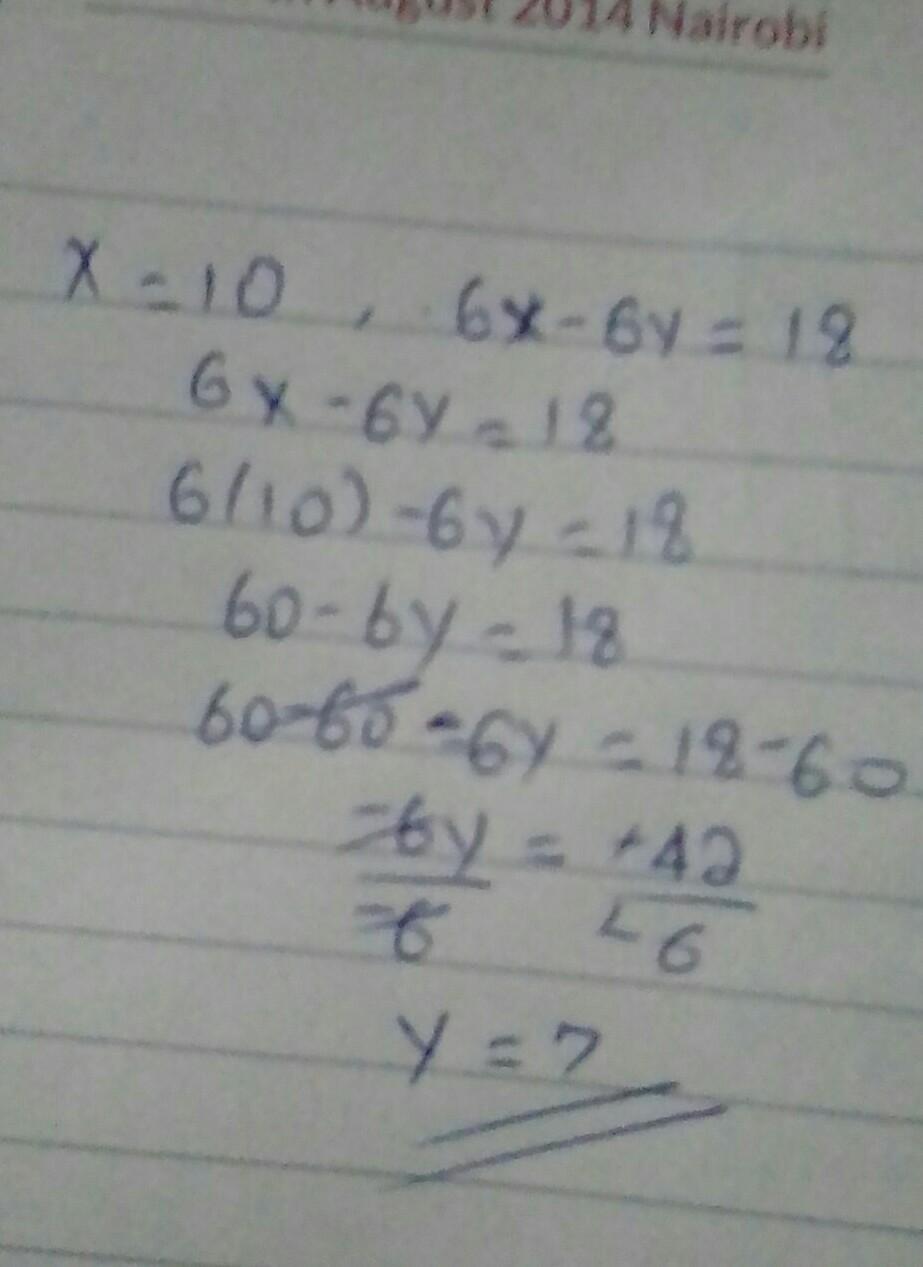 August 2014 Nairobi
x = 10 , 6x - 6y = 18
6x - 6y = 18
6(10) - 6y = 18
60 - 6y = 18
60 - 60 - 6y = 18 - 60
-6y = -42
-6 -6
y = 7